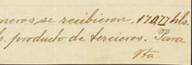 neros se recibieron, 17077 bls.
producto de terceros. Para
Yta.